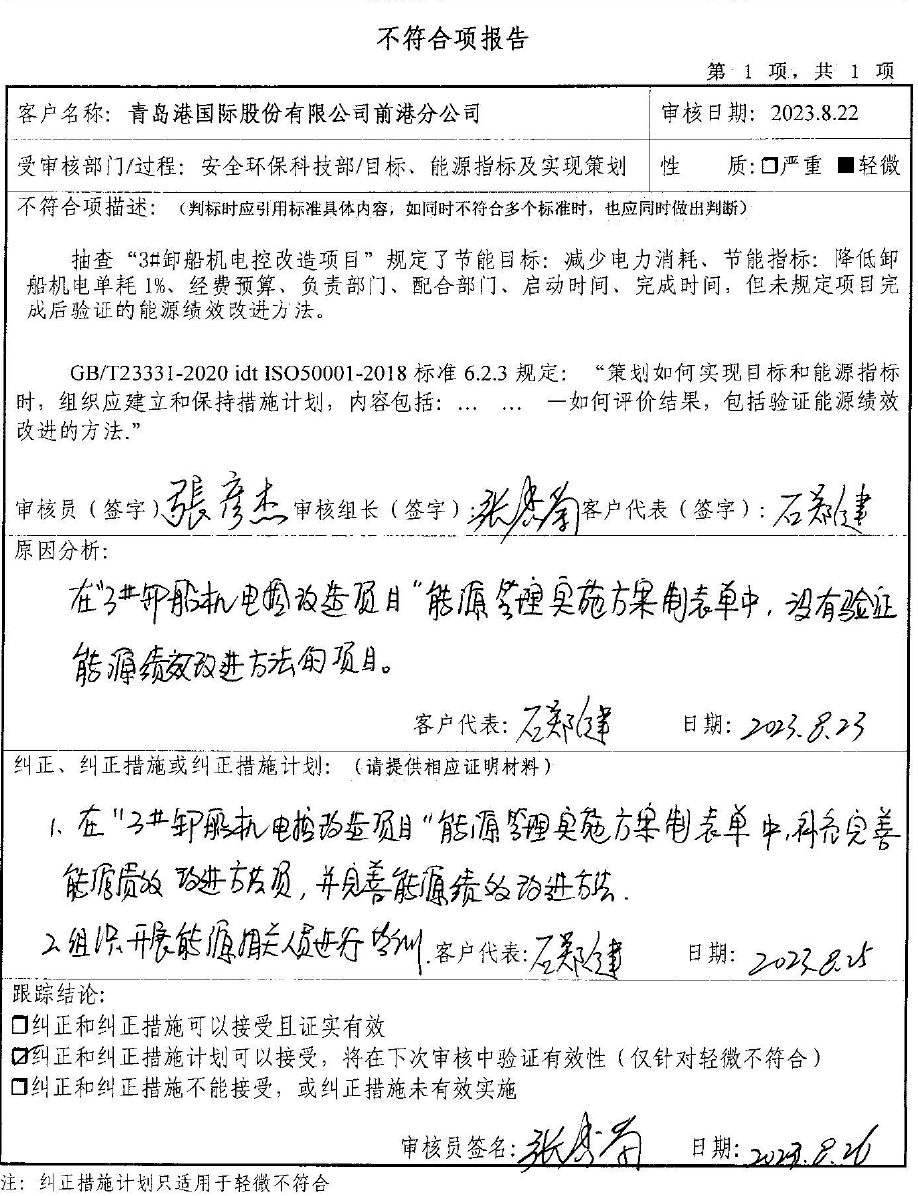 不符合项报告
第 1 项，共 1 项
客户名称： 青岛港国际股份有限公司前港分公司 审核日期： 2023.8.22
受审核部门/过程： 安全环保科技部/目标、能源指标及实现策划 性 质：□严重 ■轻微
不符合项描述：（判标时应引用标准具体内容，如同时不符合多个标准时，也应同时做出判断）
抽查“3#卸船机电控改造项目”规定了节能目标：减少电力消耗、节能指标：降低卸
船机电单耗1%、经费预算、负责部门、配合部门、启动时间、完成时间，但未规定项目完
成后验证的能源绩效改进方法。
GB/T23331-2020 idt ISO50001-2018 标准 6.2.3 规定： “策划如何实现目标和能源指标
时，组织应建立和保持措施计划，内容包括：… … —如何评价结果，包括验证能源绩效
改进的方法.”
审核员（签字） 張彦杰 审核组长（签字）： 客户代表（签字）： 石郑健
原因分析：
在“3#卸船机电控改造项目”能源管理实施方案制表单中，没有验证
能源绩效改进方法的项目。
客户代表： 石郑健 日期： 2023.8.23
纠正、纠正措施或纠正措施计划：（请提供相应证明材料）
1. 在“3#卸船机电控改造项目”能源管理实施方案制表单中，补充完善
能源绩效改进方法项，并完善能源绩效改进方法.
2.组织开展能源相关人员进行培训. 客户代表： 石郑健 日期： 2023.8.25
跟踪结论：
□纠正和纠正措施可以接受且证实有效
☑纠正和纠正措施计划可以接受，将在下次审核中验证有效性（仅针对轻微不符合）
□纠正和纠正措施不能接受，或纠正措施未有效实施
审核员签名： 日期： 2023.8.26
注： 纠正措施计划只适用于轻微不符合